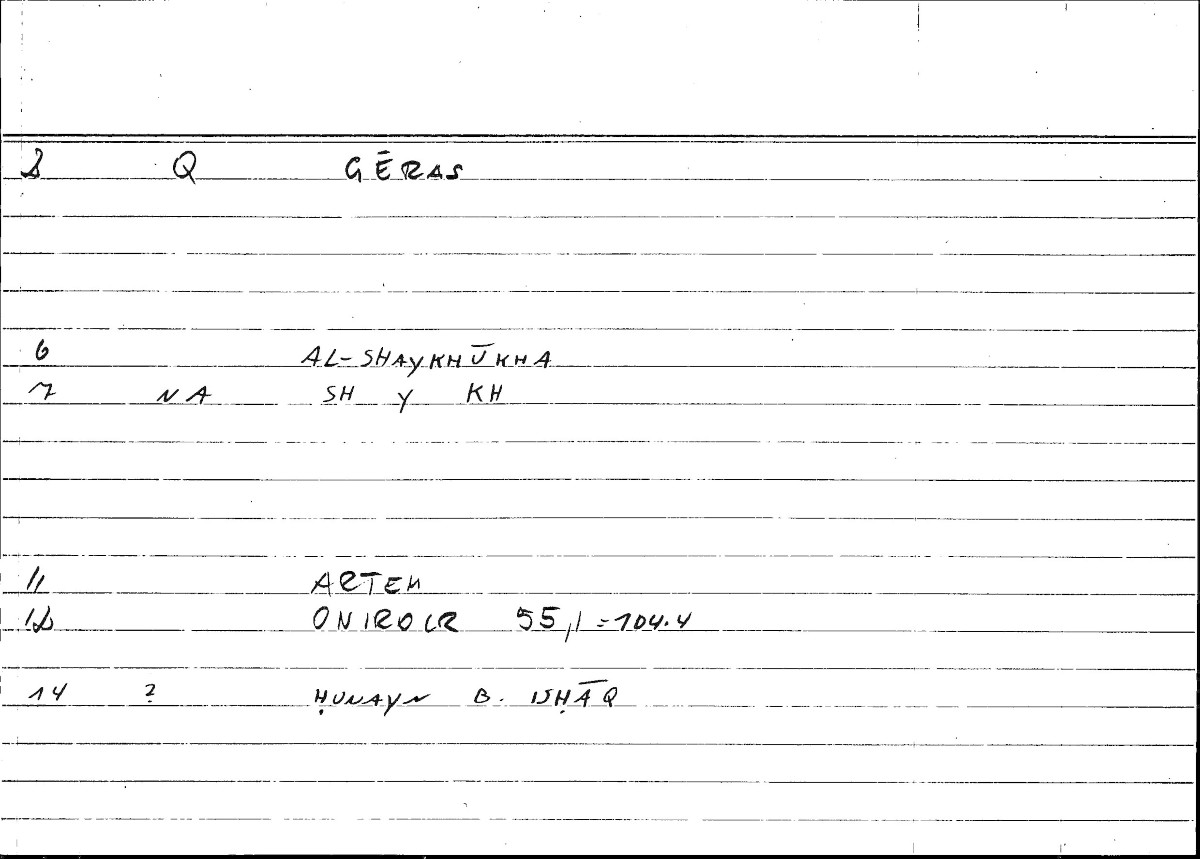 2 Q GĒRAS
6 AL-SHAYKHŪKHA
7 NA SH Y KH
11 ARTEM
12 ONIROCR 55,1=104.4
14 ? ḤUNAYN B. ISḤĀQ